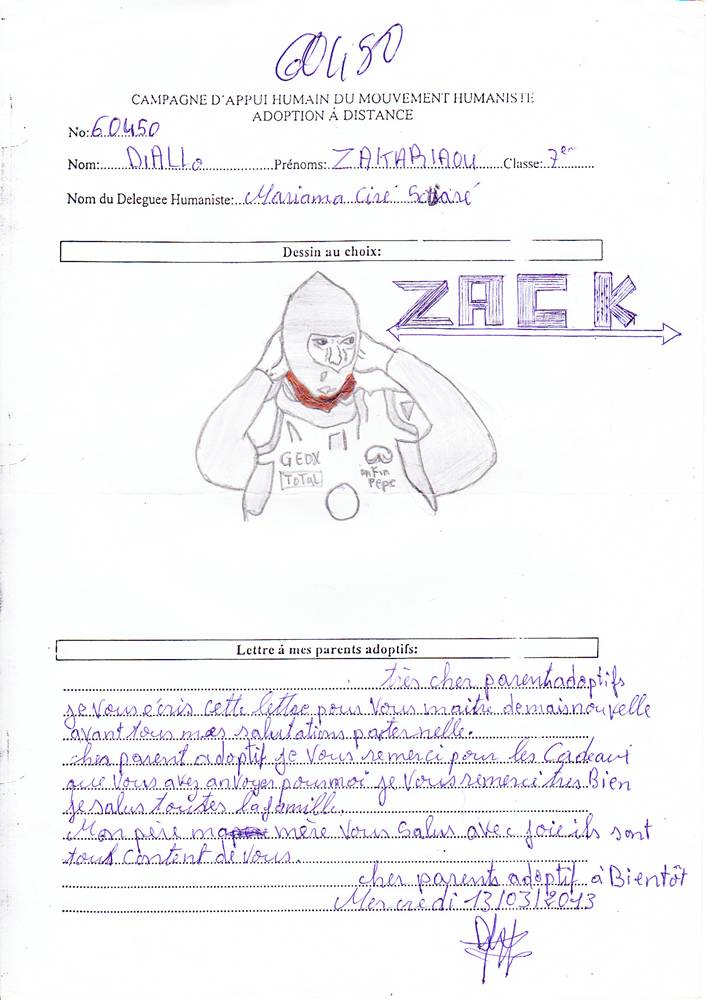 60450
CAMPAGNE D'APPUI HUMAIN DU MOUVEMENT HUMANISTE
ADOPTION Á DISTANCE
No: 60450
Nom: DiALLo Prénoms: ZAKARIAOU Classe: 7er
Nom du Deleguee Humaniste: Mariama Ciré
Dessin au choix:
ZACK
GEOX
ToTaL
enfin
Pepe
Lettre á mes parents adoptifs:
très cher parent adoptifs
je vous écris cette lettre pour vous maitre demais nouvelle
avant tous mes salutations paternelle.
cher parent adoptif je vous remerci pour les Cadeaux
que vous avez anvoyer pour moi je vous remerci tres Bien
je salus toutes la famille.
Mon père mère vous salus avec joie ils sont
tous content de vous.
cher parents adoptif à Bientôt
Mercredi 13/03/2013